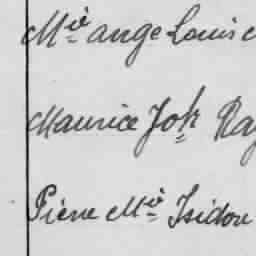 Mie ange Louis
Maurice Joh Ray
Pierre Mie Isidore